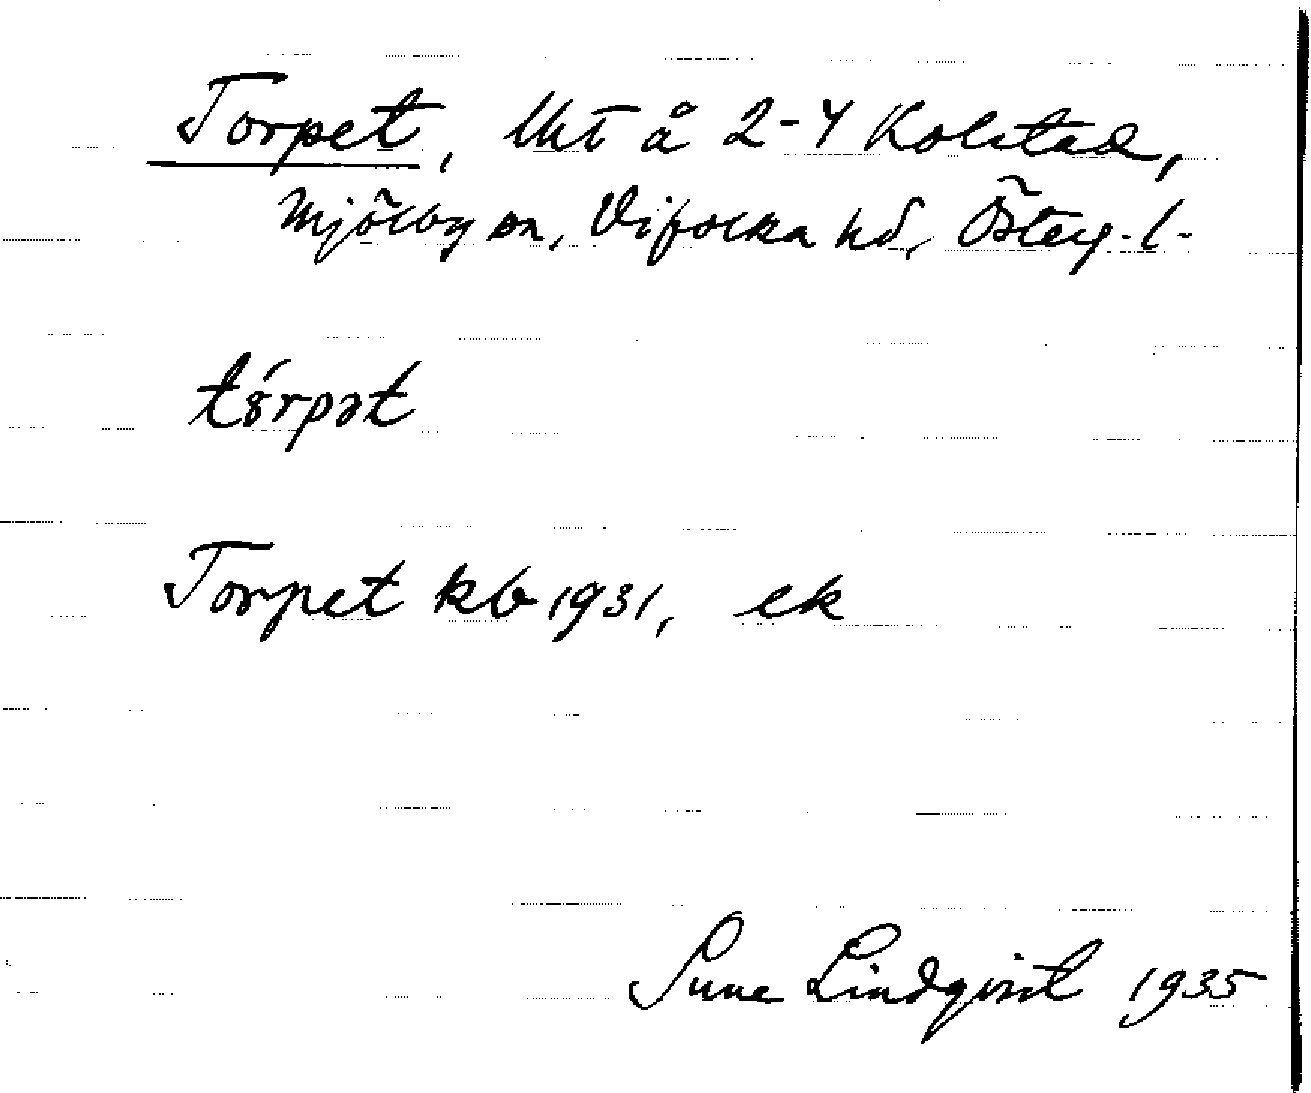 Torpet, Uht å 2-4 Kolstad,
Mjölby sn, Vifolka hd, Österg. l.
tórpət
Torpet kb 1931, ek
Sune Lindqvist 1935